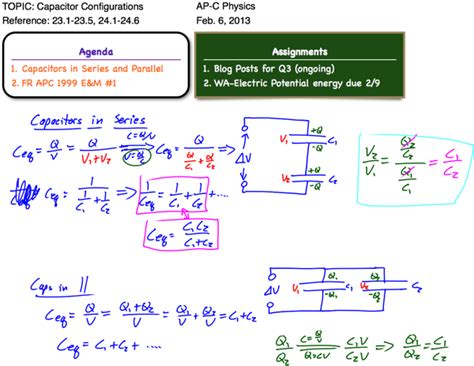 TOPIC: Capacitor Configurations
AP-C Physics
Reference: 23.1-23.5, 24.1-24.6
Feb. 6, 2013
Agenda
1. Capacitors in Series and Parallel
2. FR APC 1999 E&M #1
Assignments
1. Blog Posts for Q3 (ongoing)
2. WA–Electric Potential energy due 2/9
Capacitors in Series
C=Q/V
Ceq = Q/V = Q/(V₁+V₂) ⇒ Ceq = Q/(Q/C₁ + Q/C₂)
V=Q/C
Ceq = 1/(1/C₁ + 1/C₂) ⇒ 1/Ceq = 1/C₁ + 1/C₂ + ....
Ceq = C₁C₂/(C₁+C₂)
ΔV
V₁ +Q -Q C₁
V₂ +Q -Q C₂
V₂/V₁ = (Q/C₂)/(Q/C₁) = C₁/C₂
Caps in ||
Ceq = Q/V = (Q₁+Q₂)/V = Q₁/V + Q₂/V = C₁+C₂
Ceq = C₁+C₂+ ....
ΔV
V₁ Q₁ -Q₁ C₁
V₂ Q₂ -Q₂ C₂
Q₁/Q₂ C=Q/V Q=CV C₁V/C₂V ⇒ Q₁/Q₂ = C₁/C₂